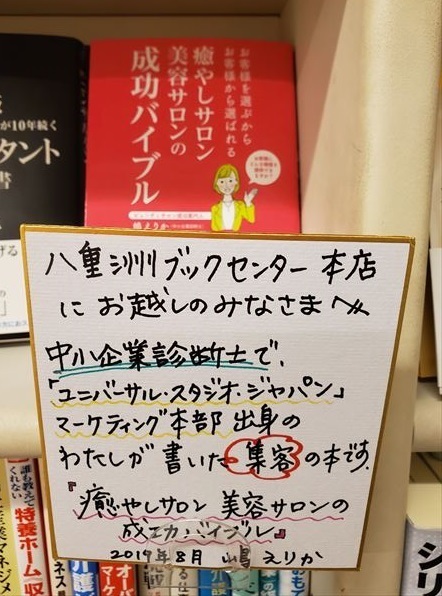 が10年続く
タント
書
お客様を選ぶから
お客様から選ばれる
癒やしサロン
美容サロンの
成功バイブル
八重洲ブックセンター本店
にお越しのみなさまへ
中小企業診断士で、
「ユニバーサル・スタジオ・ジャパン」
マーケティング本部出身の
わたしが書いた集客の本です。
『癒やしサロン 美容サロンの
成功バイブル』
2019年8月 嶋えりか
誰も教えて
くれない
特養ホーム